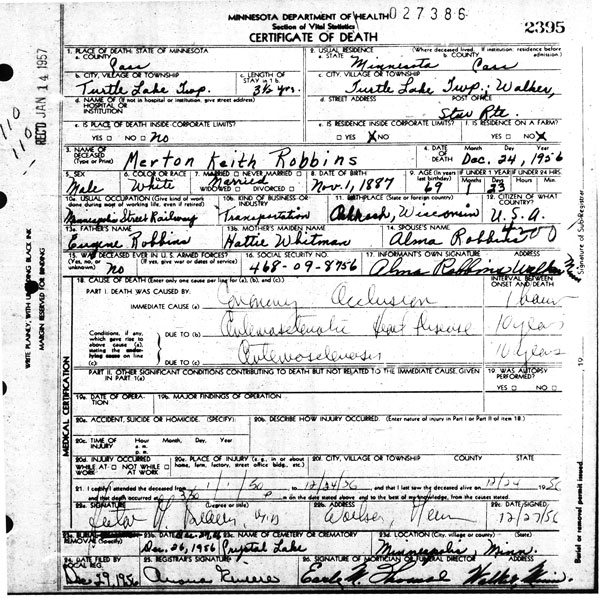 MINNESOTA DEPARTMENT OF HEALTH 027386
Section of Vital Statistics
CERTIFICATE OF DEATH
2395
REC'D JAN 14 1957
110
110
WRITE PLAINLY, WITH UNFADING BLACK INK
MARGIN RESERVED FOR BINDING
1. PLACE OF DEATH: STATE OF MINNESOTA
a. COUNTY
Cass
2. USUAL RESIDENCE (Where deceased lived. If institution: residence before admission.)
a. STATE Minnesota Cass
b. CITY, VILLAGE OR TOWNSHIP
Turtle Lake Twp.
c. LENGTH OF STAY in 1 b
3½ yrs.
c. CITY, VILLAGE OR TOWNSHIP
Turtle Lake Twp; Walker,
d. NAME OF (If not in hospital or institution, give street address)
HOSPITAL OR
INSTITUTION
d. STREET ADDRESS POST OFFICE
Star Rte
e. IS PLACE OF DEATH INSIDE CORPORATE LIMITS?
YES NO No
e. IS RESIDENCE INSIDE CORPORATE LIMITS?
YES NO X
f. IS RESIDENCE ON A FARM?
YES NO X
3. NAME OF DECEASED
(Type or Print)
Merton Keith Robbins
4. DATE OF DEATH Month Day Year
Dec. 24, 1956
5. SEX
Male
6. COLOR OR RACE
White
7. MARRIED NEVER MARRIED
WIDOWED DIVORCED
Married
8. DATE OF BIRTH
Nov. 1, 1887
9. AGE (In years last birthday)
69
IF UNDER 1 YEAR IF UNDER 24 HRS.
1 23
10a. USUAL OCCUPATION (Give kind of work done during most of working life, even if retired)
Minneapolis Street Railway
10b. KIND OF BUSINESS OR INDUSTRY
Transportation
11. BIRTHPLACE (State or foreign country)
Oshkosh, Wisconsin
12. CITIZEN OF WHAT COUNTRY?
U.S.A.
13a. FATHER'S NAME
Eugene Robbins
13b. MOTHER'S MAIDEN NAME
Hattie Whitman
14. SPOUSE'S NAME
Alma Robbins
4200
15. WAS DECEASED EVER IN U.S. ARMED FORCES?
(Yes, no, or unknown) (If yes, give war or dates of service)
No
16. SOCIAL SECURITY NO.
468-09-8756
17. INFORMANT'S OWN SIGNATURE
Alma Robbins Walker
18. CAUSE OF DEATH (Enter only one cause per line for (a), (b), and (c).
PART I. DEATH WAS CAUSED BY:
IMMEDIATE CAUSE (a) Coronary Occlusion
INTERVAL BETWEEN ONSET AND DEATH
1 hour
Conditions, if any, which gave rise to above cause (a), stating the underlying cause on line (c)
DUE TO (b) Arteriosclerotic Heart Disease 10 years
DUE TO (c) Arteriosclerosis 10 years
PART II. OTHER SIGNIFICANT CONDITIONS CONTRIBUTING TO DEATH BUT NOT RELATED TO THE IMMEDIATE CAUSE, GIVEN IN PART 1(a)
19. WAS AUTOPSY PERFORMED?
YES NO
MEDICAL CERTIFICATION
19a. DATE OF OPERATION
19b. MAJOR FINDINGS OF OPERATION.
20a. ACCIDENT, SUICIDE OR HOMICIDE. (SPECIFY)
20b. DESCRIBE HOW INJURY OCCURRED. (Enter nature of injury in Part I or Part II of item 18.)
20c. TIME OF INJURY Hour a.m. p.m. Month, Day, Year
20d. INJURY OCCURRED
WHILE AT WORK NOT WHILE AT WORK
20e. PLACE OF INJURY (e.g., in or about home, farm, factory, street office bldg., etc.)
20f. CITY, VILLAGE OR TOWNSHIP COUNTY STATE
21. I certify I attended the deceased from 1/1/50 to 12/24/56 and that I last saw the deceased alive on 12/24 1956
and that death occurred at 3/30 p m on the date stated above and to the best of my knowledge, from the causes stated.
22a. SIGNATURE (Degree or title)
M.D.
22b. ADDRESS
Walker, Minn
22c. DATE SIGNED:
12/27/56
23a. BURIAL REMOVAL (Specify)
23b. DATE
Dec. 26, 1956
23c. NAME OF CEMETERY OR CREMATORY
Crystal Lake
23d. LOCATION (City, village or county) (State)
Minneapolis Minn.
24. DATE FILED BY LOCAL REG.
Dec 29, 1956
25. REGISTRAR'S SIGNATURE
26. SIGNATURE OF MORTICIAN OR FUNERAL DIRECTOR ADDRESS
Earle W. Thomas Walker, Minn.
Signature of Sub-Registrar
19
Burial or removal permit issued.